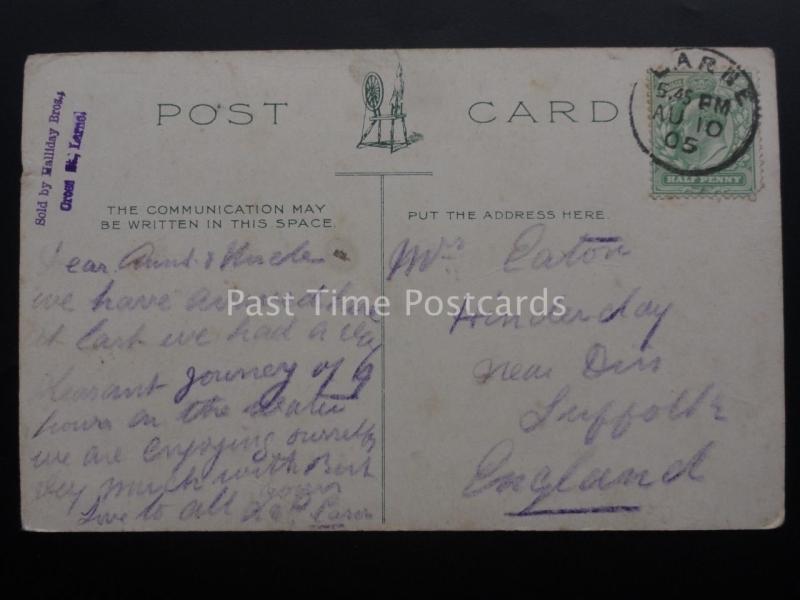 Sold by Halliday Bros.,
Cross St., Larne.
POST CARD
LARNE
5.45 PM
AU 10
05
HALF PENNY
THE COMMUNICATION MAY
BE WRITTEN IN THIS SPACE.
PUT THE ADDRESS HERE.
Dear Aunt & Uncle
we have arrived here
at last we had a very
pleasant journey of 9
hours on the water
we are enjoying ourselfs
very much with Best
Love to all from
Mrs Eaton
Hinderclay
near Diss
Suffolk
England
Past Time Postcards